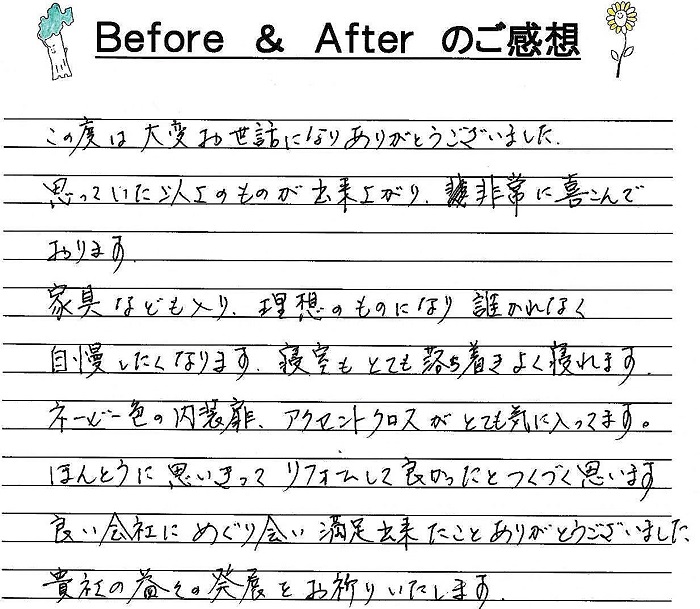 Before & After のご感想
この度は大変お世話になりありがとうございました.
思っていた以上のものが出来上がり、非常に喜こんで
おります.
家具なども入り、理想のものになり誰かれなく
自慢したくなります. 寝室もとても落ち着きよく寝れます.
ネービー色の内装扉、アクセントクロスがとても気に入ってます。
ほんとうに思いきってリフォームして良かったとつくづく思います
良い会社にめぐり会い満足出来たことありがとうございました.
貴社の益々の発展をお祈りいたします.